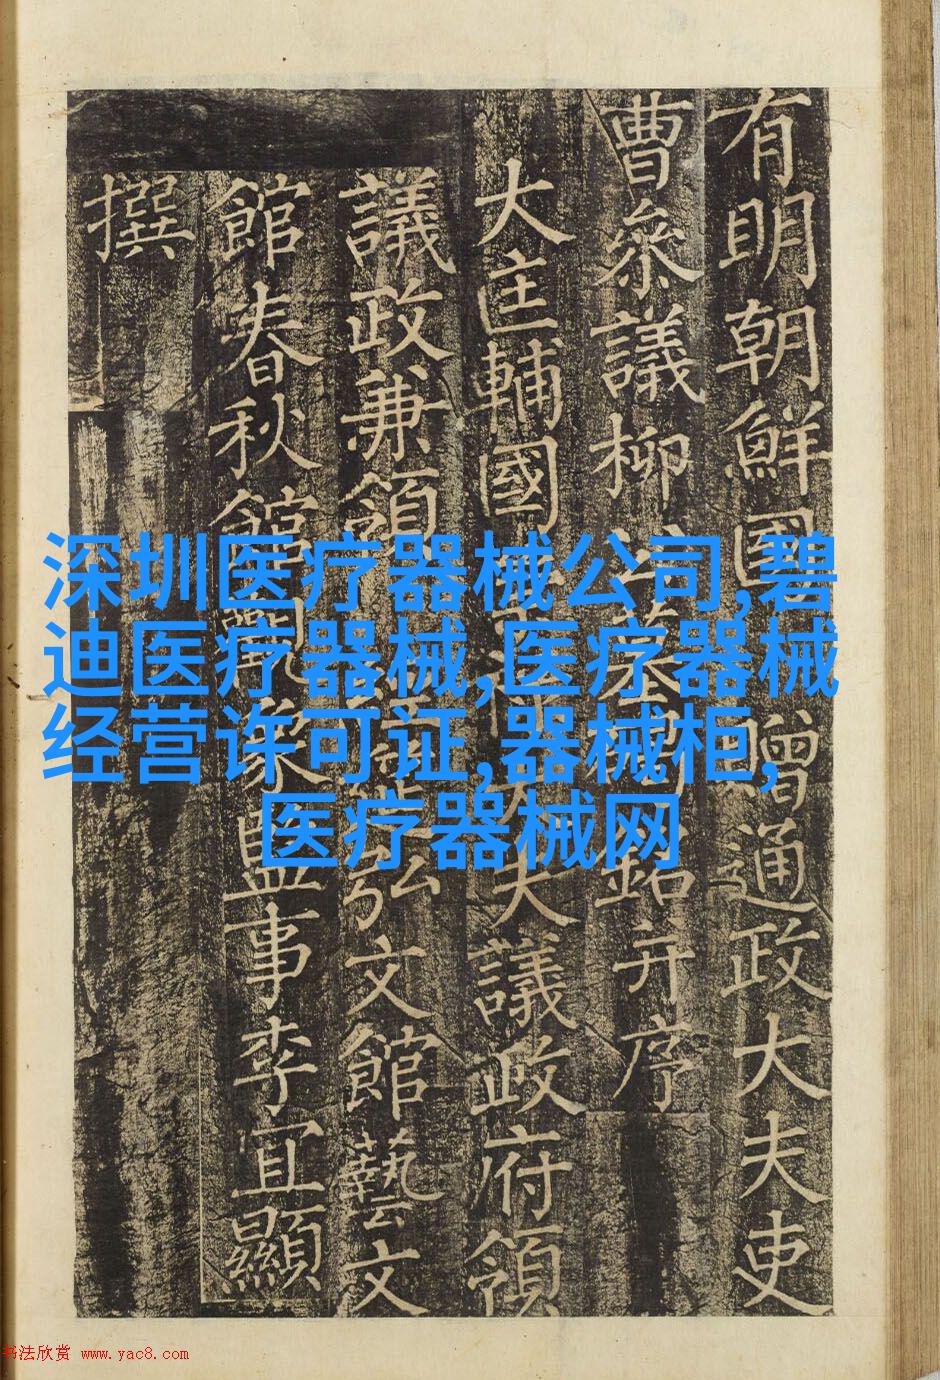 有明朝鮮國贈通政大夫吏
曹叅議柳公墓碣銘并序
大匡輔國祿大夫議政府領
議政兼領經筵弘文館藝文
館春秋館觀象監事李宜顯
撰
深圳医疗器械公司,碧
迪医疗器械,医疗器械
经营许可证,器械柜,
医疗器械网
书法欣赏 www.yac8.com